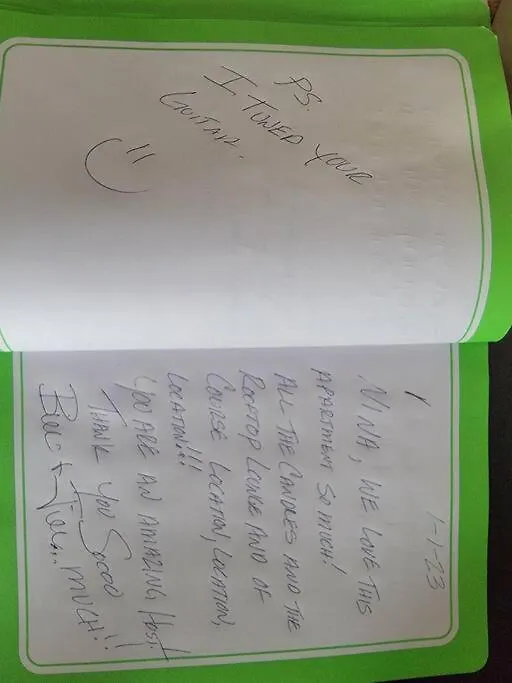 PS.
I TUNED YOUR
GUITAR.
1-1-23
NINA, WE LOVE THIS
APARTMENT SO MUCH!
ALL THE CANDLES AND THE
ROOFTOP LOUNGE AND OF
COURSE LOCATION, LOCATION,
LOCATION!!!
YOU ARE AN AMAZING HOST!
THANK YOU SOOOO
MUCH!!
Bill +